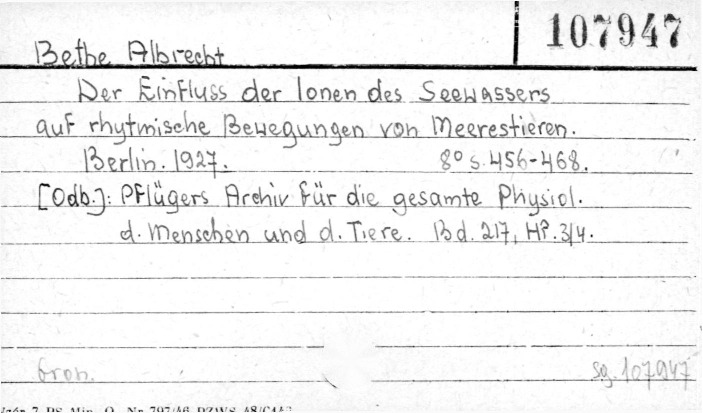 107947
Bethe Albrecht
Der Einfluss der Ionen des Seewassers
auf rhytmische Bewegungen von Meerestieren.
Berlin. 1927. 8º s. 456-468.
[Odb.]: Pflügers Archiv für die gesamte Physiol.
d. Menschen und d. Tiere. Bd. 217, Hf. 3/4.
Gron. Sg. 107947
PS Min. O. Nr 797/46 PZWS